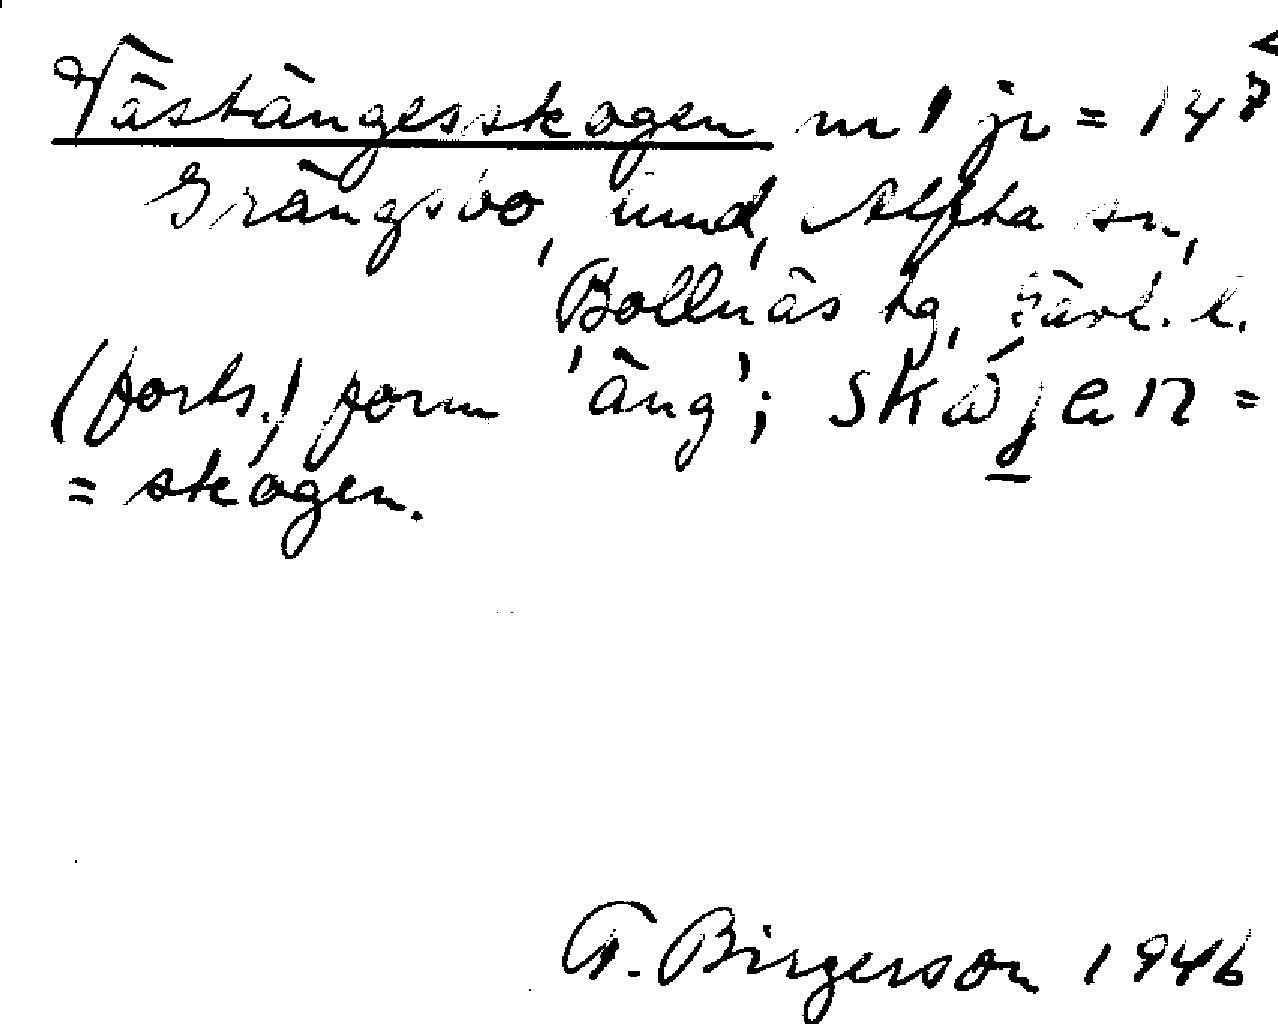 Västängesskogen m 1 jr = 14
Grängsbo, und, Alfta sn,
Bollnäs tg, Gävl. l.
(forts.) form 'äng'; skájen =
= skogen.
F. Birgerson 1946